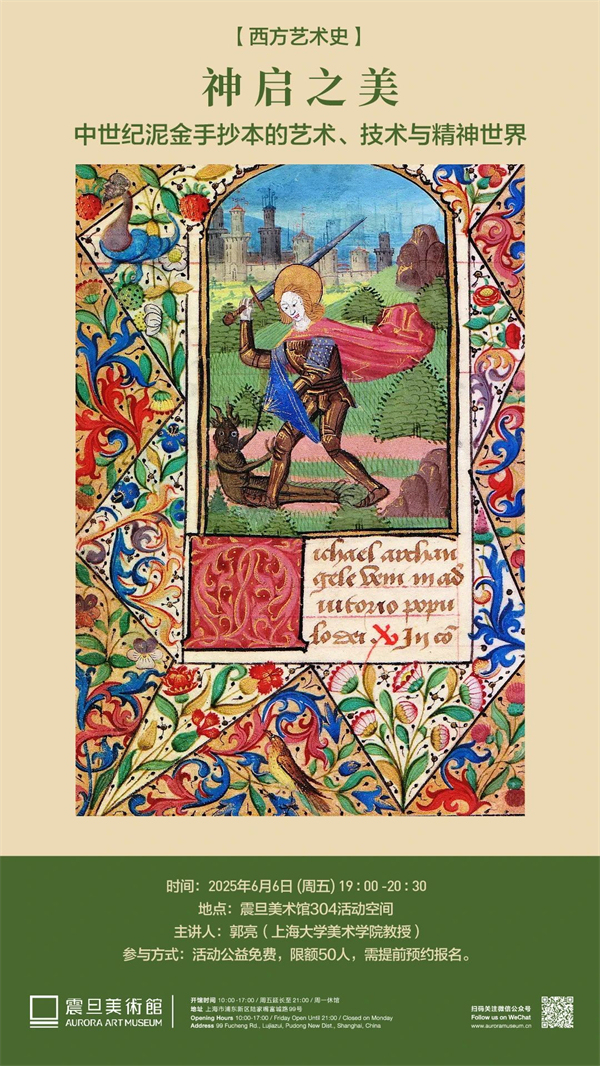 【西方艺术史】
神启之美
中世纪泥金手抄本的艺术、技术与精神世界
ichael archan
gele veni in ad
iutorio popu
lo dei In co
时间：2025年6月6日 (周五) 19：00 -20：30
地点：震旦美术馆304活动空间
主讲人：郭亮（上海大学美术学院教授）
参与方式：活动公益免费，限额50人，需提前预约报名。
震旦美術館
AURORA ART MUSEUM
开馆时间 10:00-17:00 / 周五延长至21:00 / 周一休馆
地址 上海市浦东新区陆家嘴富城路99号
Opening Hours 10:00-17:00 / Friday Open Until 21:00 / Closed on Monday
Address 99 Fucheng Rd., Lujiazui, Pudong New Dist., Shanghai, China
扫码关注微信公众号
Follow us on WeChat
www.auroramuseum.cn